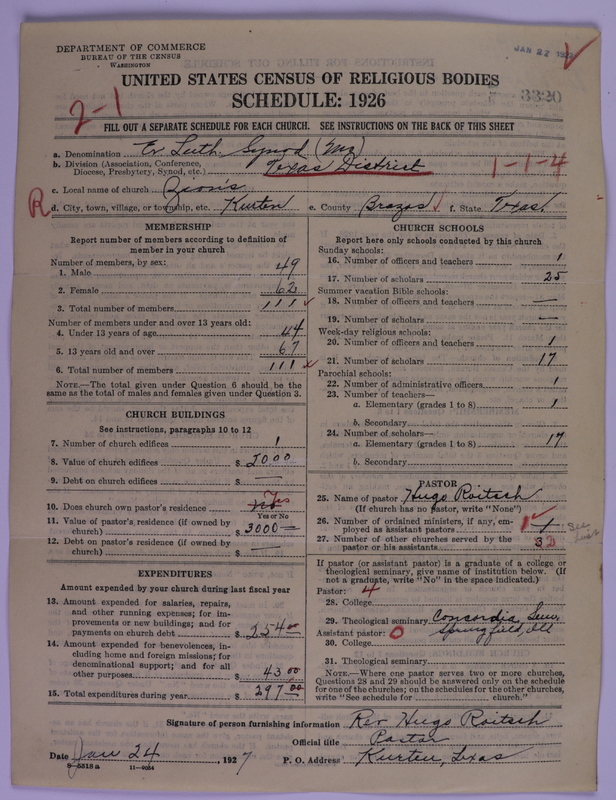 DEPARTMENT OF COMMERCE
BUREAU OF THE CENSUS
WASHINGTON
JAN 27 192
UNITED STATES CENSUS OF RELIGIOUS BODIES
SCHEDULE: 1926
2-1
3320
FILL OUT A SEPARATE SCHEDULE FOR EACH CHURCH. SEE INSTRUCTIONS ON THE BACK OF THIS SHEET
a. Denomination Ev. Luth. Synod (Mo)
b. Division (Association, Conference, Diocese, Presbytery, Synod, etc.) Texas District
1-1-4
c. Local name of church Zion's
R
d. City, town, village, or township, etc. Kurten e. County Brazos f. State Texas.
MEMBERSHIP
Report number of members according to definition of
member in your church
Number of members, by sex:
1. Male 49
2. Female 62
3. Total number of members 111
Number of members under and over 13 years old:
4. Under 13 years of age 44
5. 13 years old and over 67
6. Total number of members 111
NOTE.—The total given under Question 6 should be the
same as the total of males and females given under Question 3.
CHURCH BUILDINGS
See instructions, paragraphs 10 to 12
7. Number of church edifices 1
8. Value of church edifices $ 2000
9. Debt on church edifices $ —
10. Does church own pastor's residence no Yes
Yes or No
11. Value of pastor's residence (if owned by
church) $ 3000 —
12. Debt on pastor's residence (if owned by
church) $ —
EXPENDITURES
Amount expended by your church during last fiscal year
13. Amount expended for salaries, repairs,
and other running expenses; for im-
provements or new buildings; and for
payments on church debt $ 254 00
14. Amount expended for benevolences, in-
cluding home and foreign missions; for
denominational support; and for all
other purposes $ 43 00
15. Total expenditures during year $ 297 00
CHURCH SCHOOLS
Report here only schools conducted by this church
Sunday schools:
16. Number of officers and teachers 1
17. Number of scholars 25
Summer vacation Bible schools:
18. Number of officers and teachers —
19. Number of scholars —
Week-day religious schools:
20. Number of officers and teachers 1
21. Number of scholars 17
Parochial schools:
22. Number of administrative officers 1
23. Number of teachers—
a. Elementary (grades 1 to 8) 1
b. Secondary
24. Number of scholars—
a. Elementary (grades 1 to 8) 17
b. Secondary
PASTOR
25. Name of pastor Hugo Roitsch
(If church has no pastor, write "None")
26. Number of ordained ministers, if any, em-
ployed as assistant pastors 1
27. Number of other churches served by the
pastor or his assistants 3
If pastor (or assistant pastor) is a graduate of a college or
theological seminary, give name of institution below. (If
not a graduate, write "No" in the space indicated.)
Pastor: 4
28. College
29. Theological seminary Concordia Sem.
Springfield, Ill
Assistant pastor: 0
30. College
31. Theological seminary
NOTE.—Where one pastor serves two or more churches,
Questions 28 and 29 should be answered only on the schedule
for one of the churches; on the schedules for the other churches,
write "See schedule for church."
Signature of person furnishing information Rev Hugo Roitsch
Official title Pastor
Date Jan 24, 1927 P. O. Address Kurten, Texas
8—5318a 11—9054